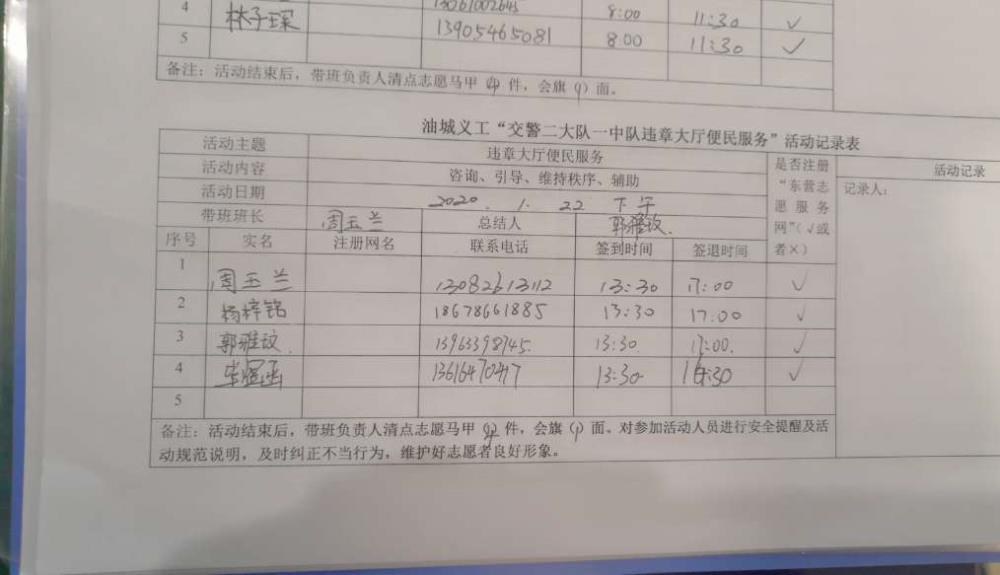 4 林子琛 8:00 11:30 √
5 13905465081 8:00 11:30 √
备注：活动结束后，带班负责人清点志愿马甲（4）件，会旗（1）面。
油城义工“交警二大队一中队违章大厅便民服务”活动记录表
活动主题 违章大厅便民服务 是否注册“东营志愿服务网”（√或者×） 活动记录
活动内容 咨询、引导、维持秩序、辅助 记录人：
活动日期 2020. 1. 22 下午
带班班长 周玉兰 总结人 郭雅玟
序号 实名 注册网名 联系电话 签到时间 签退时间
1 周玉兰 13:30 17:00 √
2 杨梓铭 18678661885 13:30 17:00 √
3 郭雅玟 13963398745 13:30 17:00 √
4 13:30 16:30 √
5
备注：活动结束后，带班负责人清点志愿马甲（4）件，会旗（1）面。对参加活动人员进行安全提醒及活
动规范说明，及时纠正不当行为，维护好志愿者良好形象。